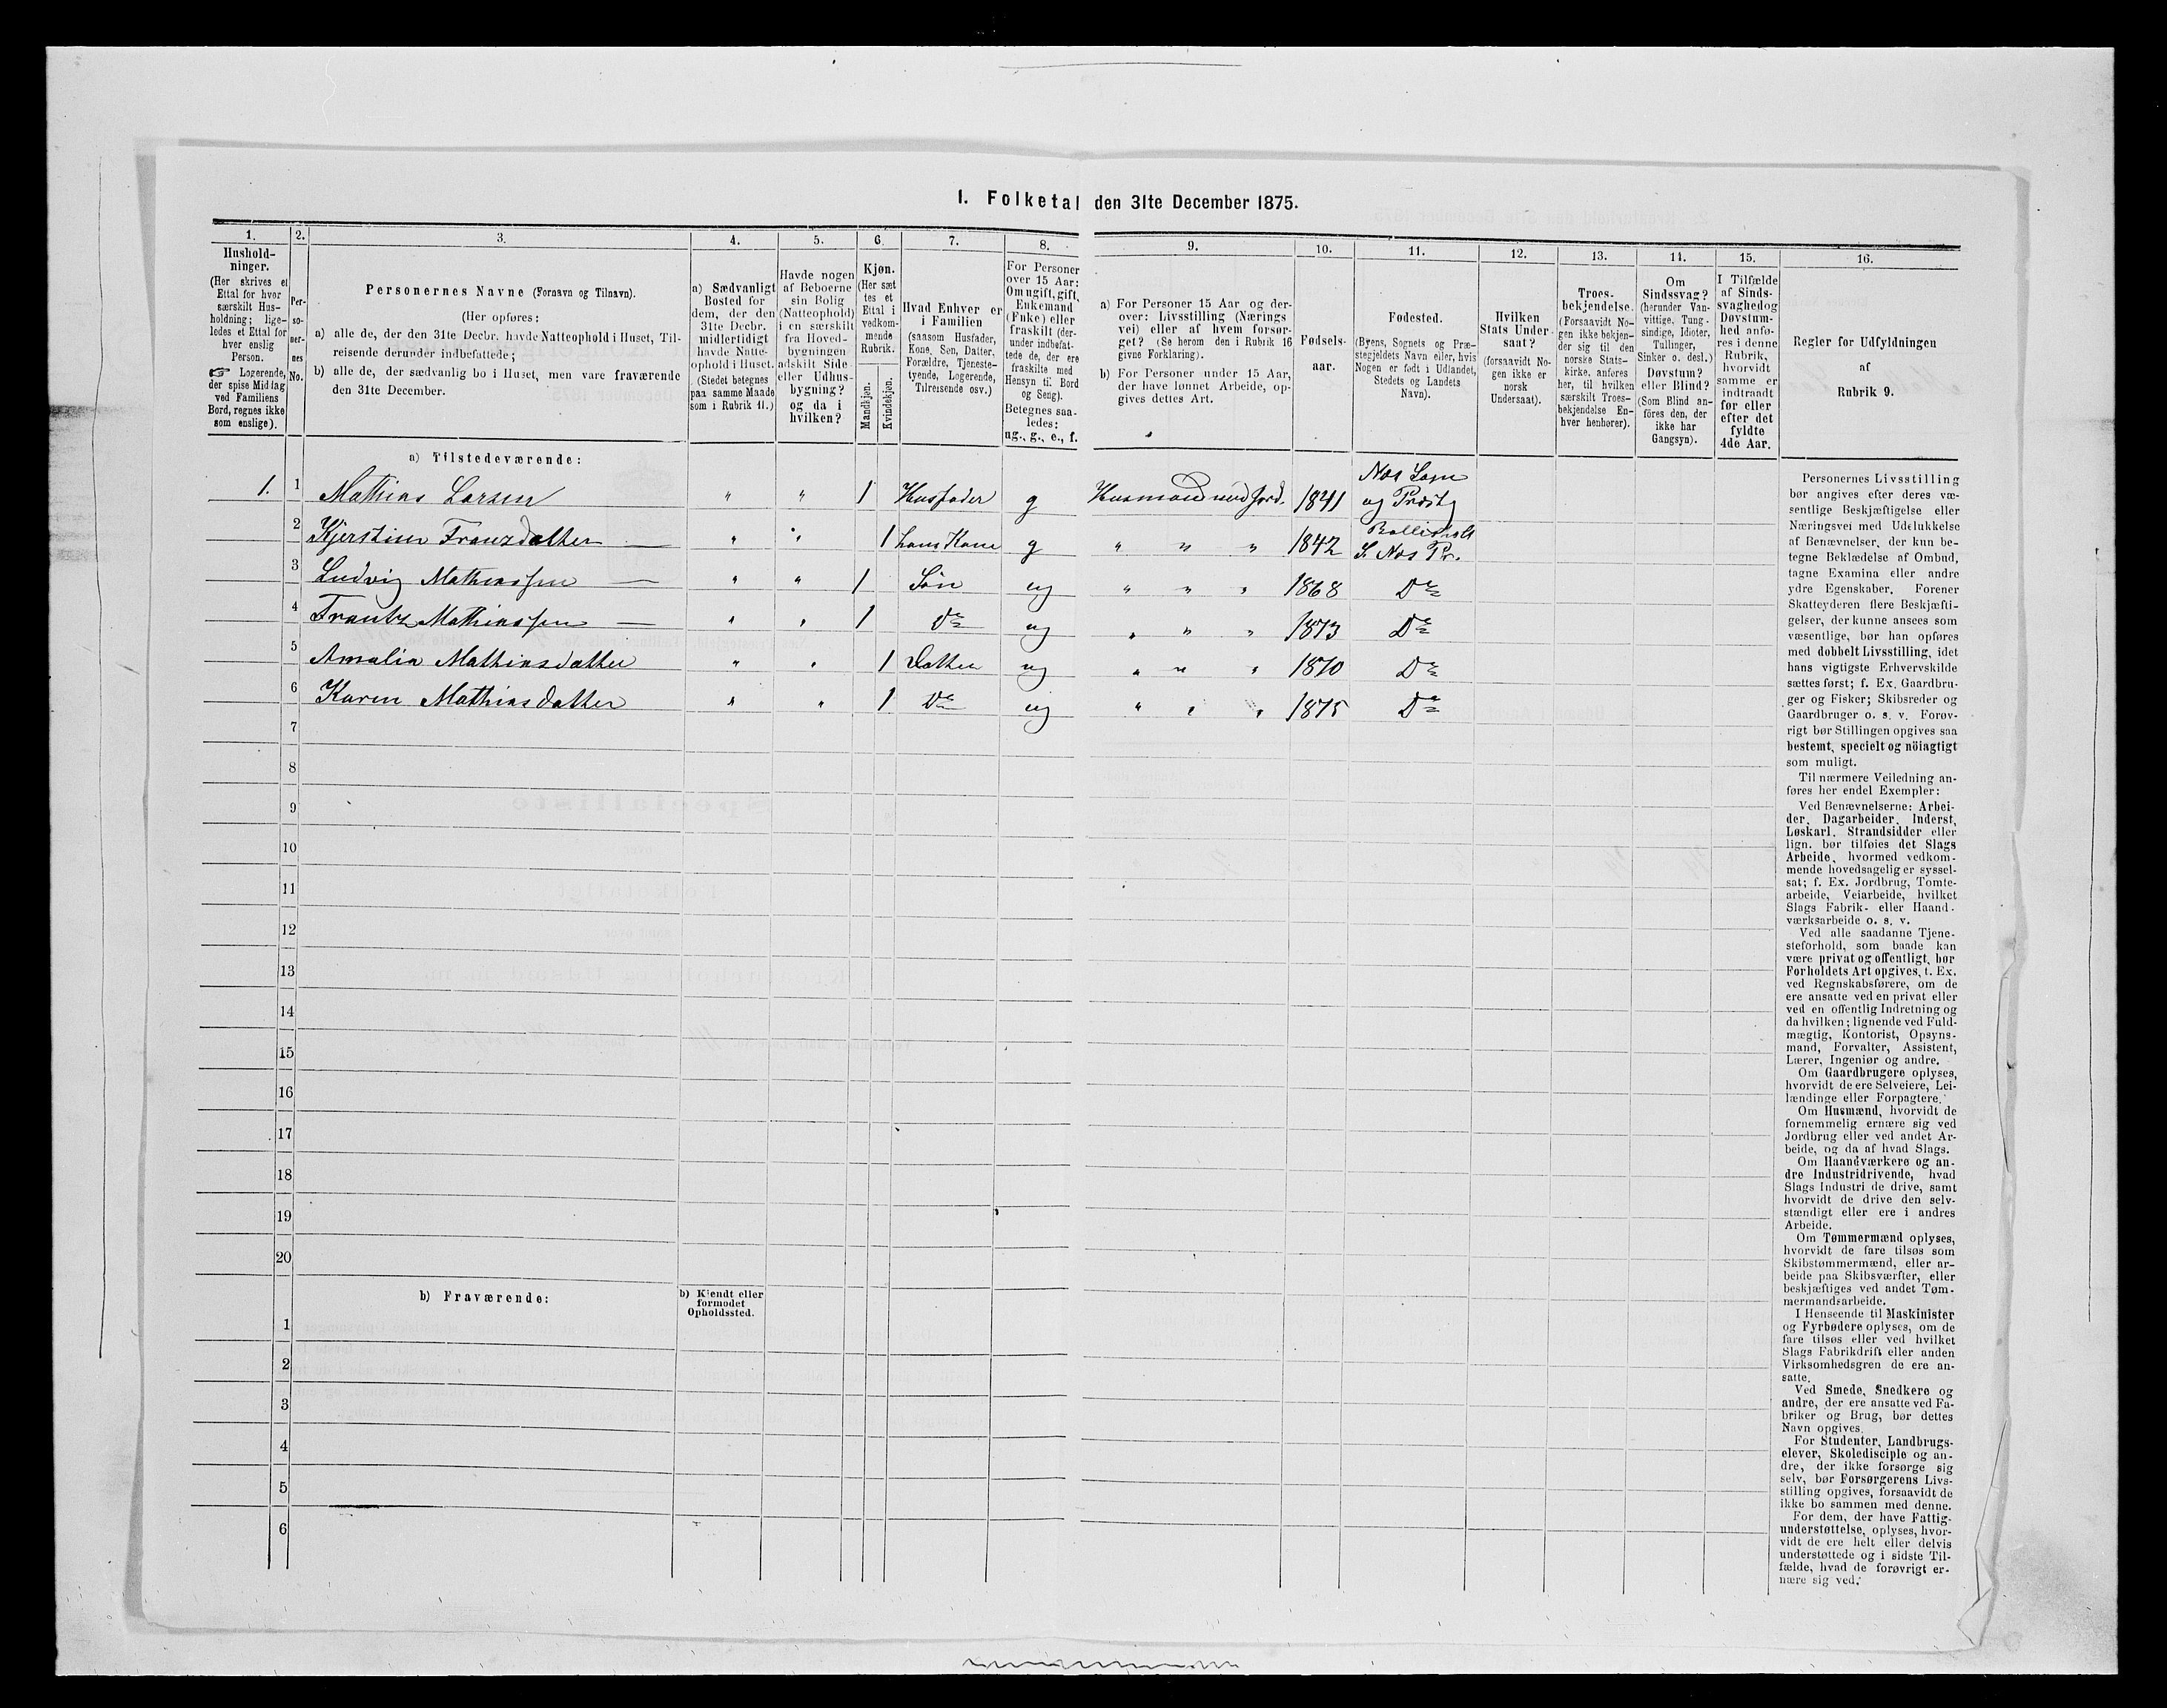 1. Folketal den 31te December 1875.
1. 2. 3. 4. 5. 6. 7. 8. 9. 10. 11. 12. 13. 14. 15. 16.
Hushold-
ninger.
(Her skrives et
Ettal for hver
særskilt Hus-
holdning; lige-
ledes et Ettal for
hver enslig
Person.
☞ Logerende,
der spise Middag
ved Familiens
Bord, regnes ikke
som enslige).
Per-
so-
ner-
nes
No.
Personernes Navne (Fornavn og Tilnavn).
(Her opføres:
a) alle de, der den 31te Decbr. havde Natteophold i Huset, Til-
reisende derunder indbefattede;
b) alle de, der sædvanlig bo i Huset, men vare fraværende
den 31te December.
a) Sædvanligt
Bosted for
dem, der den
31te Decbr.
midlertidigt
havde Natte-
ophold i Huset.
(Stedet betegnes
paa samme Maade
som i Rubrik 11.)
Havde nogen
af Beboerne
sin Bolig
(Natteophold)
i en særskilt
fra Hoved-
bygningen
adskilt Side-
eller Udhus-
bygning?
og da i
hvilken?
Kjøn.
(Her sæt
tes et
Ettal i
vedkom-
mende
Rubrik.
Mandkjøn.
Kvindekjøn.
Hvad Enhver er
i Familien
(saasom Husfader,
Kone, Søn, Datter,
Forældre, Tjeneste-
tyende, Logerende,
Tilreisende osv.)
For Personer
over 15 Aar:
Om ugift, gift,
Enkemand
(Enke) eller
fraskilt (der-
under indbefat-
tede de, der ere
fraskilte med
Hensyn til Bord
og Seng).
Betegnes saa-
ledes:
ug., g., e., f.
a) For Personer 15 Aar og der-
over: Livsstilling (Nærings
vei) eller af hvem forsør-
get? (Se herom den i Rubrik 16
givne Forklaring).
b) For Personer under 15 Aar,
der have lønnet Arbeide, op-
gives dettes Art.
Fødsels-
aar.
Fødested.
(Byens, Sognets og Præ-
stegjeldets Navn eller, hvis
Nogen er født i Udlandet,
Stedets og Landets
Navn).
Hvilken
Stats Under-
saat?
(forsaavidt No-
gen ikke er
norsk
Undersaat).
Troes-
bekjendelse.
(Forsaavidt No-
gen ikke bekjen-
der sig til den
norske Stats-
kirke, anføres
her, til hvilken
særskilt Troes-
bekjendelse En-
hver henhører).
Om
Sindssvag?
(herunder Van-
vittige, Tung-
sindige, Idioter,
Tullinger,
Sinker o. desl.)
Døvstum?
eller Blind?
(Som Blind an-
föres den, der
ikke har
Gangsyn).
I Tilfælde
af Sinds-
svaghed og
Døvstum-
hed anfø-
res i denne
Rubrik,
hvorvidt
samme er
indtraadt
før eller
efter det
fyldte
4de Aar.
Regler for Udfyldningen
af
Rubrik 9.
a) Tilstedeværende:
1. 1 Mathias Larsen " " 1 Husfader g Husmand med Jord. 1841 Nes Sogn og Præstg
2 Kjerstine Franzdatter — " " 1 hans Kone g " " " 1842 S. Nes Pr.
3 Ludvig Mathiassen — " " 1 Søn ug " " " 1868 Do
4 Frantz Mathiassen — " " 1 Do ug " " " 1873 Do
5 Amalia Mathiasdatter " " 1 Datter ug " " " 1870 Do
6 Karen Mathiasdatter " " 1 Do ug " " " 1875 Do
7
8
9
10
11
12
13
14
15
16
17
18
19
20
b) Fraværende:
b) Kjendt eller
formodet
Opholdssted.
1
2
3
4
5
6
Personernes Livsstilling
bør angives efter deres væ-
sentlige Beskjæftigelse eller
Næringsvei med Udelukkelse
af Benævnelser, der kun be-
tegne Beklædelse af Ombud,
tagne Examina eller andre
ydre Egenskaber. Forener
Skatteyderen flere Beskjæfti-
gelser, der kunne ansees som
væsentlige, bør han opføres
med dobbelt Livsstilling, idet
hans vigtigste Erhvervskilde
sættes først; f. Ex. Gaardbru-
ger og Fisker; Skibsreder og
Gaardbruger o. s. v. Forøv-
rigt bør Stillingen opgives saa
bestemt, specielt og nöiagtigt
som muligt.
Til nærmere Veiledning an-
føres her endel Exempler:
Ved Benævnelserne: Arbei-
der, Dagarbeider, Inderst,
Løskarl, Strandsidder eller
lign. bør tilføies det Slags
Arbeide, hvormed vedkom-
mende hovedsagelig er syssel-
sat; f. Ex. Jordbrug, Tomte-
arbeide, Veiarbeide, hvilket
Slags Fabrik- eller Haand-
værksarbeide o. s. v.
Ved alle saadanne Tjene-
steforhold, som baade kan
være privat og offentligt, bør
Forholdets Art opgives, t. Ex.
ved Regnskabsførere, om de
ere ansatte ved en privat eller
ved en offentlig Indretning og
da hvilken; lignende ved Fuld-
mægtig, Kontorist, Opsyns-
mand, Forvalter, Assistent,
Lærer, Ingeniør og andre.
Om Gaardbrugere oplyses,
hvorvidt de ere Selveiere, Lei-
lændinge eller Forpagtere.
Om Husmænd, hvorvidt de
fornemmelig ernære sig ved
Jordbrug eller ved andet Ar-
beide, og da af hvad Slags.
Om Haandværkere og an-
dre Industridrivende, hvad
Slags Industri de drive, samt
hvorvidt de drive den selv-
stændigt eller ere i andres
Arbeide.
Om Tømmermænd oplyses,
hvorvidt de fare tilsøs som
Skibstømmermænd, eller ar-
beide paa Skibsværfter, eller
beskjæftiges ved andet Tøm-
mermandsarbeide.
I Henseende til Maskinister
og Fyrbødere oplyses, om de
fare tilsøs eller ved hvilket
Slags Fabrikdrift eller anden
Virksomhedsgren de ere an-
satte.
Ved Smede, Snedkere og
andre, der ere ansatte ved Fa-
briker og Brug, bør dettes
Navn opgives.
For Studenter, Landbrugs-
elever, Skoledisciple og an-
dre, der ikke forsørge sig
selv, bør Forsørgerens Livs-
stilling opgives, forsaavidt de
ikke bo sammen med denne.
For dem, der have Fattig-
understøttelse, oplyses, hvor-
vidt de ere helt eller delvis
understøttede og i sidste Til-
fælde, hvad de forøvrigt er-
nære sig ved.